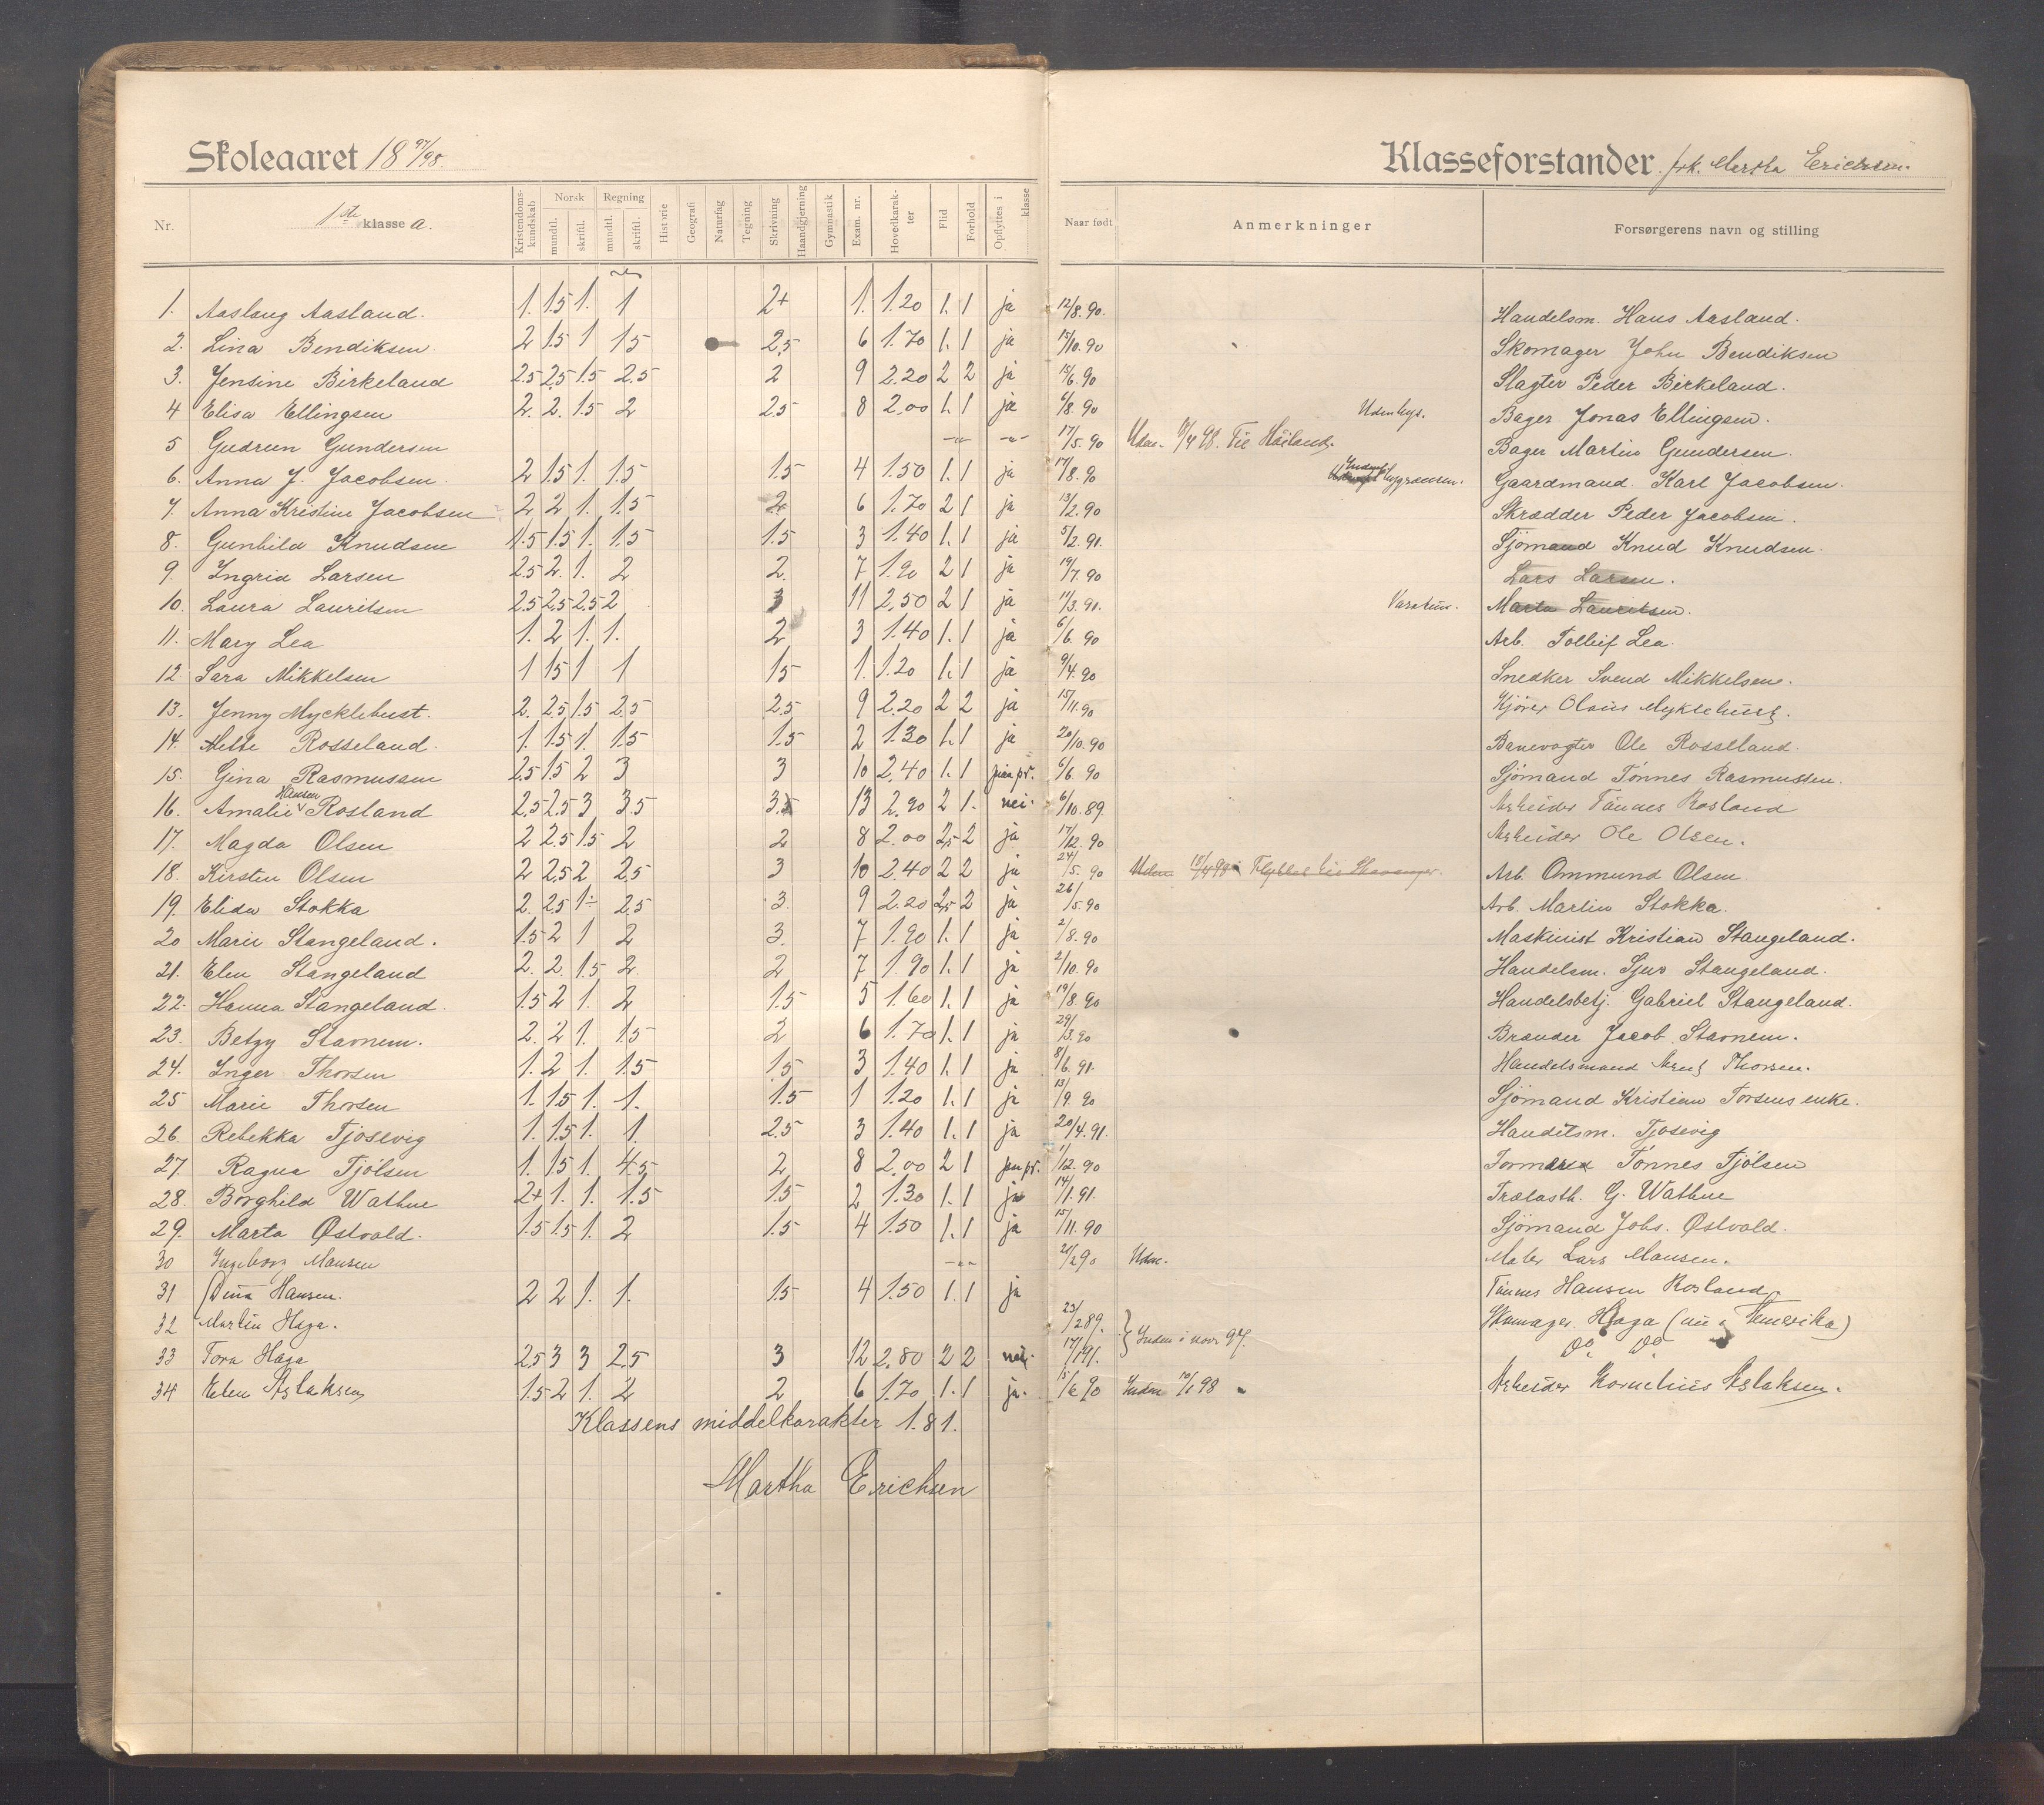 Skoleaaret 18 97/98
Klasseforstander frk. Martha Erichsen.
Nr. 1ste klasse a. Kristendoms-kundskab Norsk mundtl. skriftl. Regning mundtl. skriftl. Historie Geografi Naturfag Tegning Skrivning Haandgjerning Gymnastik Exam. nr. Hovedkarak-ter Flid Forhold Opflyttes i klasse Naar født Anmerkninger Forsørgerens navn og stilling
1. Aaslaug Aasland. 1. 1.5 1. 1 2+ 1. 1.20 1. 1 ja 12/8.90. Handelsm. Hans Aasland.
2. Lina Bendiksen 2 1.5 1 1.5 2.5 6 1.70 1. 1 ja 15/10.90 Skomager John Bendiksen
3. Jensine Birkeland 2.5 2.5 1.5 2.5 2 9 2.20 2 2 ja 15/6.90 Slagter Peder Birkeland.
4 Elisa Ellingsen 2. 2. 1.5 2 2.5 8 2.00 1. 1 ja 6/8.90 Udenbys. Bager Jonas Ellingsen.
5 Gudrun Gundersen -"- -"- 17/5.90 Udm. 98. Til Høiland. Bager Martin Gundersen.
6. Anna J. Jacobsen. 2 1.5 1. 1.5 1.5 4 1.50 1. 1 ja 17/8.90 Gaardmand. Karl Jacobsen.
7. Anna Kristine Jacobsen 2 2 1. 1.5 2. 6 1.70 2 1 ja 13/2.90 Skrædder Peder Jacobsen.
8. Gunhild Knudsen 1.5 1.5 1. 1.5 1.5 3 1.40 1. 1 ja 5/2.91. Sjömand Knud Knudsen.
9. Ingrid Larsen 2.5 2. 1. 2 2. 7 1.90 2 1 ja 19/7.90 Lars Larsen.
10. Laura Lauritsen 2.5 2.5 2.5 2 3 11 2.50 2 1 ja 11/3.91. Marta Lauritsen.
11. Mary Lea 1. 2 1. 1. 2 3 1.40 1. 1 ja 6/6.90 Arb. Tolleif Lea.
12. Sara Mikkelsen 1 1.5 1 1 1.5 1. 1.20 1. 1 ja 9/4.90 Snedker Svend Mikkelsen.
13. Jenny Mycklebust. 2. 2.5 1.5 2.5 2.5 9 2.20 2 2 ja 15/11.90 Kjører Olaus Myklebust.
14. Mette Rosseland. 1. 1.5 1. 1.5 1.5 2 1.30 1. 1 ja 20/10.90 Banevogter Ole Rosseland.
15. Gina Rasmussen 2.5 1.5 2 3 3 10 2.40 1. 1 paa pr. 6/6.90 Sjömand Tönnes Rasmussen.
16. Amalie Hansen Rosland 2.5 2.5 3 3.5 3.5 13 2.90 2 1. nei. 6/10.89. Arbeider Tönnes Rosland
17. Magda Olsen 2 2.5 1.5 2 2 8 2.00 2.5 2 ja 17/12.90 Arbeider Ole Olsen.
18. Kirsten Olsen 2 2.5 2 2.5 3 10 2.40 2 2 ja 24/5.90 Udm. 98 Flyttet til Stavanger. Arb. Ommund Olsen
19. Elida Stokka 2. 2.5 1÷ 2.5 3. 9 2.20 2.5 2 ja 26/5.90 Arb. Martin Stokka.
20 Marie Stangeland. 1.5 2 1 2 3. 7 1.90 1. 1 ja 2/8.90 Maskinist Kristian Stangeland.
21. Elen Stangeland 2. 2. 1.5 2. 2 7 1.90 1. 1 ja 2/10.90 Handelsm. Sjur Stangeland.
22. Hanna Stangeland. 1.5 2 1. 2 1.5 5 1.60 1. 1 ja 19/8.90 Handelsbetj. Gabriel Stangeland.
23. Betzy Stavnem. 2. 2 1. 1.5 2 6 1.70 1. 1 ja 29/3.90 Brænder Jacob Stavnem.
24. Inger Thorsen 1. 2 1. 1.5 1.5 3 1.40 1. 1 ja 8/6.91. Handelsmand Thorsen.
25 Marie Thorsen 1. 1.5 1. 1. 1.5 1 1.20 1. 1 ja 13/9.90 Sjömand Kristian Torsens enke.
26. Rebekka Tjosevig 1. 1.5 1. 1. 2.5 3 1.40 1. 1 ja 20/4.91. Handelsm. Tjosevig
27. Ragna Tjölsen 1. 1.5 1. 4.5 2 8 2.00 2 1 paa pr. 1/12.90 Tönnes Tjölsen
28. Borghild Wathne 2+ 1. 1. 1.5 1.5 2 1.30 1. 1 ja 14/1.91. Trælasth. G. Wathne
29. Marta Østvold. 1.5 1.5 1. 2 1.5 4 1.50 1. 1 ja 15/11.90 Sjömand Johs. Østvold.
30 Ingeborg Mansen -"- 21/2 90 Udm. Maler Lars Mansen.
31 Dina Hansen. 2 2 1. 1. 1.5 4 1.50 1. 1 ja Tönnes Hansen Rosland.
32 Martin Haga. 23/2 89. } Indm i novr 97. Skomager Haga (nu i Amerika)
33 Tora Haga 2.5 3 3 2.5 3 12 2.80 2 2 nei. 17/1 91. Do. Do.
34 Elen Aslaksen 1.5 2 1. 2 2 6 1.70 1. 1 ja. 15/6 90 Indm 10/1 98 Arbeider Kornelius Aslaksen.
Klassens middelkarakter 1.81.
Martha Erichsen